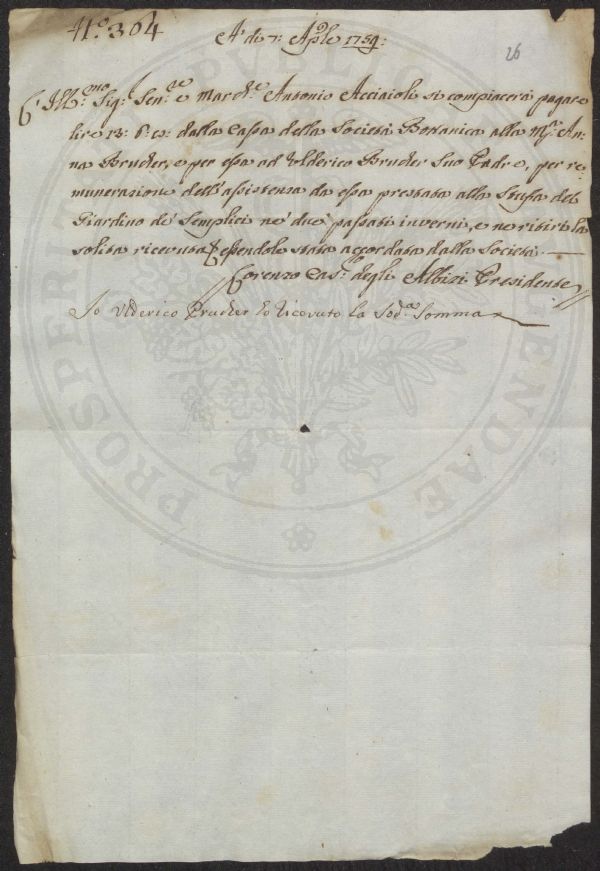 N.° 364
A' di 7: Aple 1759:
26
L' Ill:mo Sig: Sen:re e March:e Antonio Acciaioli si compiacerà pagare
lire 13: 6: dalla Cassa della Società Bottanica alla M:a An:
na Brucher, e per essa ad Ulderico Brucher Suo Padre, per re:
munerazione dell'assistenza da essa prestata alla Stufa del
Giardino de' Semplici ne' due passati inverni, e ne ritiri la
solita ricevuta essendole stata accordata dalla Società.
Lorenzo Gas:e degli Albizi Presidente
Io Ulderico Prucher ho ricevuto la Sod:a Somma
PROSPERITATI PUBLICAE AUGENDAE